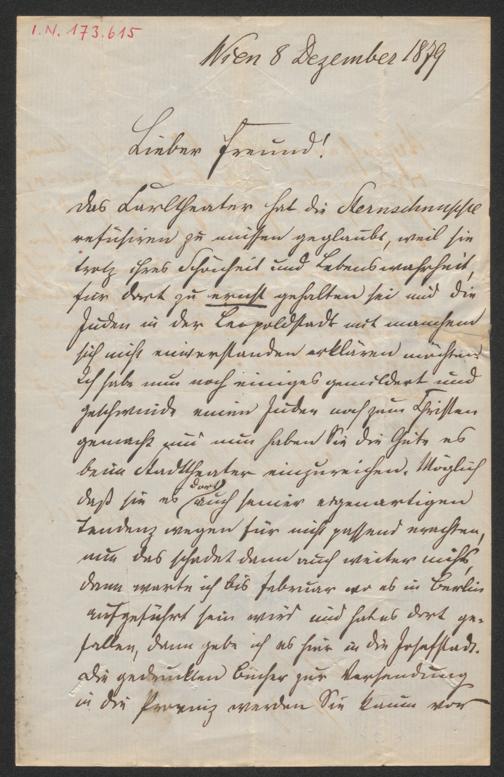 I.N. 173.615
Wien 8 Dezember 1879
Lieber Freund!
Das Carltheater hat die Sternschnuppe
refüsiren zu müssen geglaubt, weil sie
trotz ihrer Schönheit und Lebenswahrheit,
für dort zu ernst gehalten sei und die
Juden in der Leopoldstadt mit manchem
sich nicht einverstanden erklären möchten.
Ich habe nun noch einiges gemildert und
geschwinde einen Juden noch zum Christen
gemacht und nun haben Sie die Güte es
beim Stadttheater einzureichen. Möglich
daß sie es dort auch seiner eigenartigen
Tendenz wegen für nicht passend erachten,
nun das schadet dann auch weiter nichts,
dann warte ich bis Februar wo es in Berlin
aufgeführt sein wird und hat es dort ge-
fallen, dann gebe ich es hier in die Josefstadt.
Die gedruckten Bücher zur Versendung
in die Provinz werden Sie kaum vor